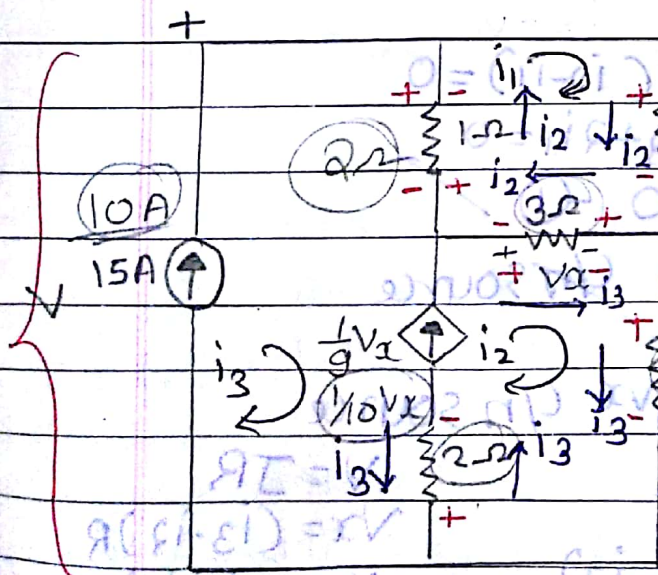 +
i₁
+ - +
1Ω i₂ i₂
2Ω
- + i₂ -
10A
3Ω
- +
+ -
15A + Vx - i₃
V
1/9 Vx i₂ +
i₃
1/10 Vx - i₃ -
i₃ 2Ω i₃
+